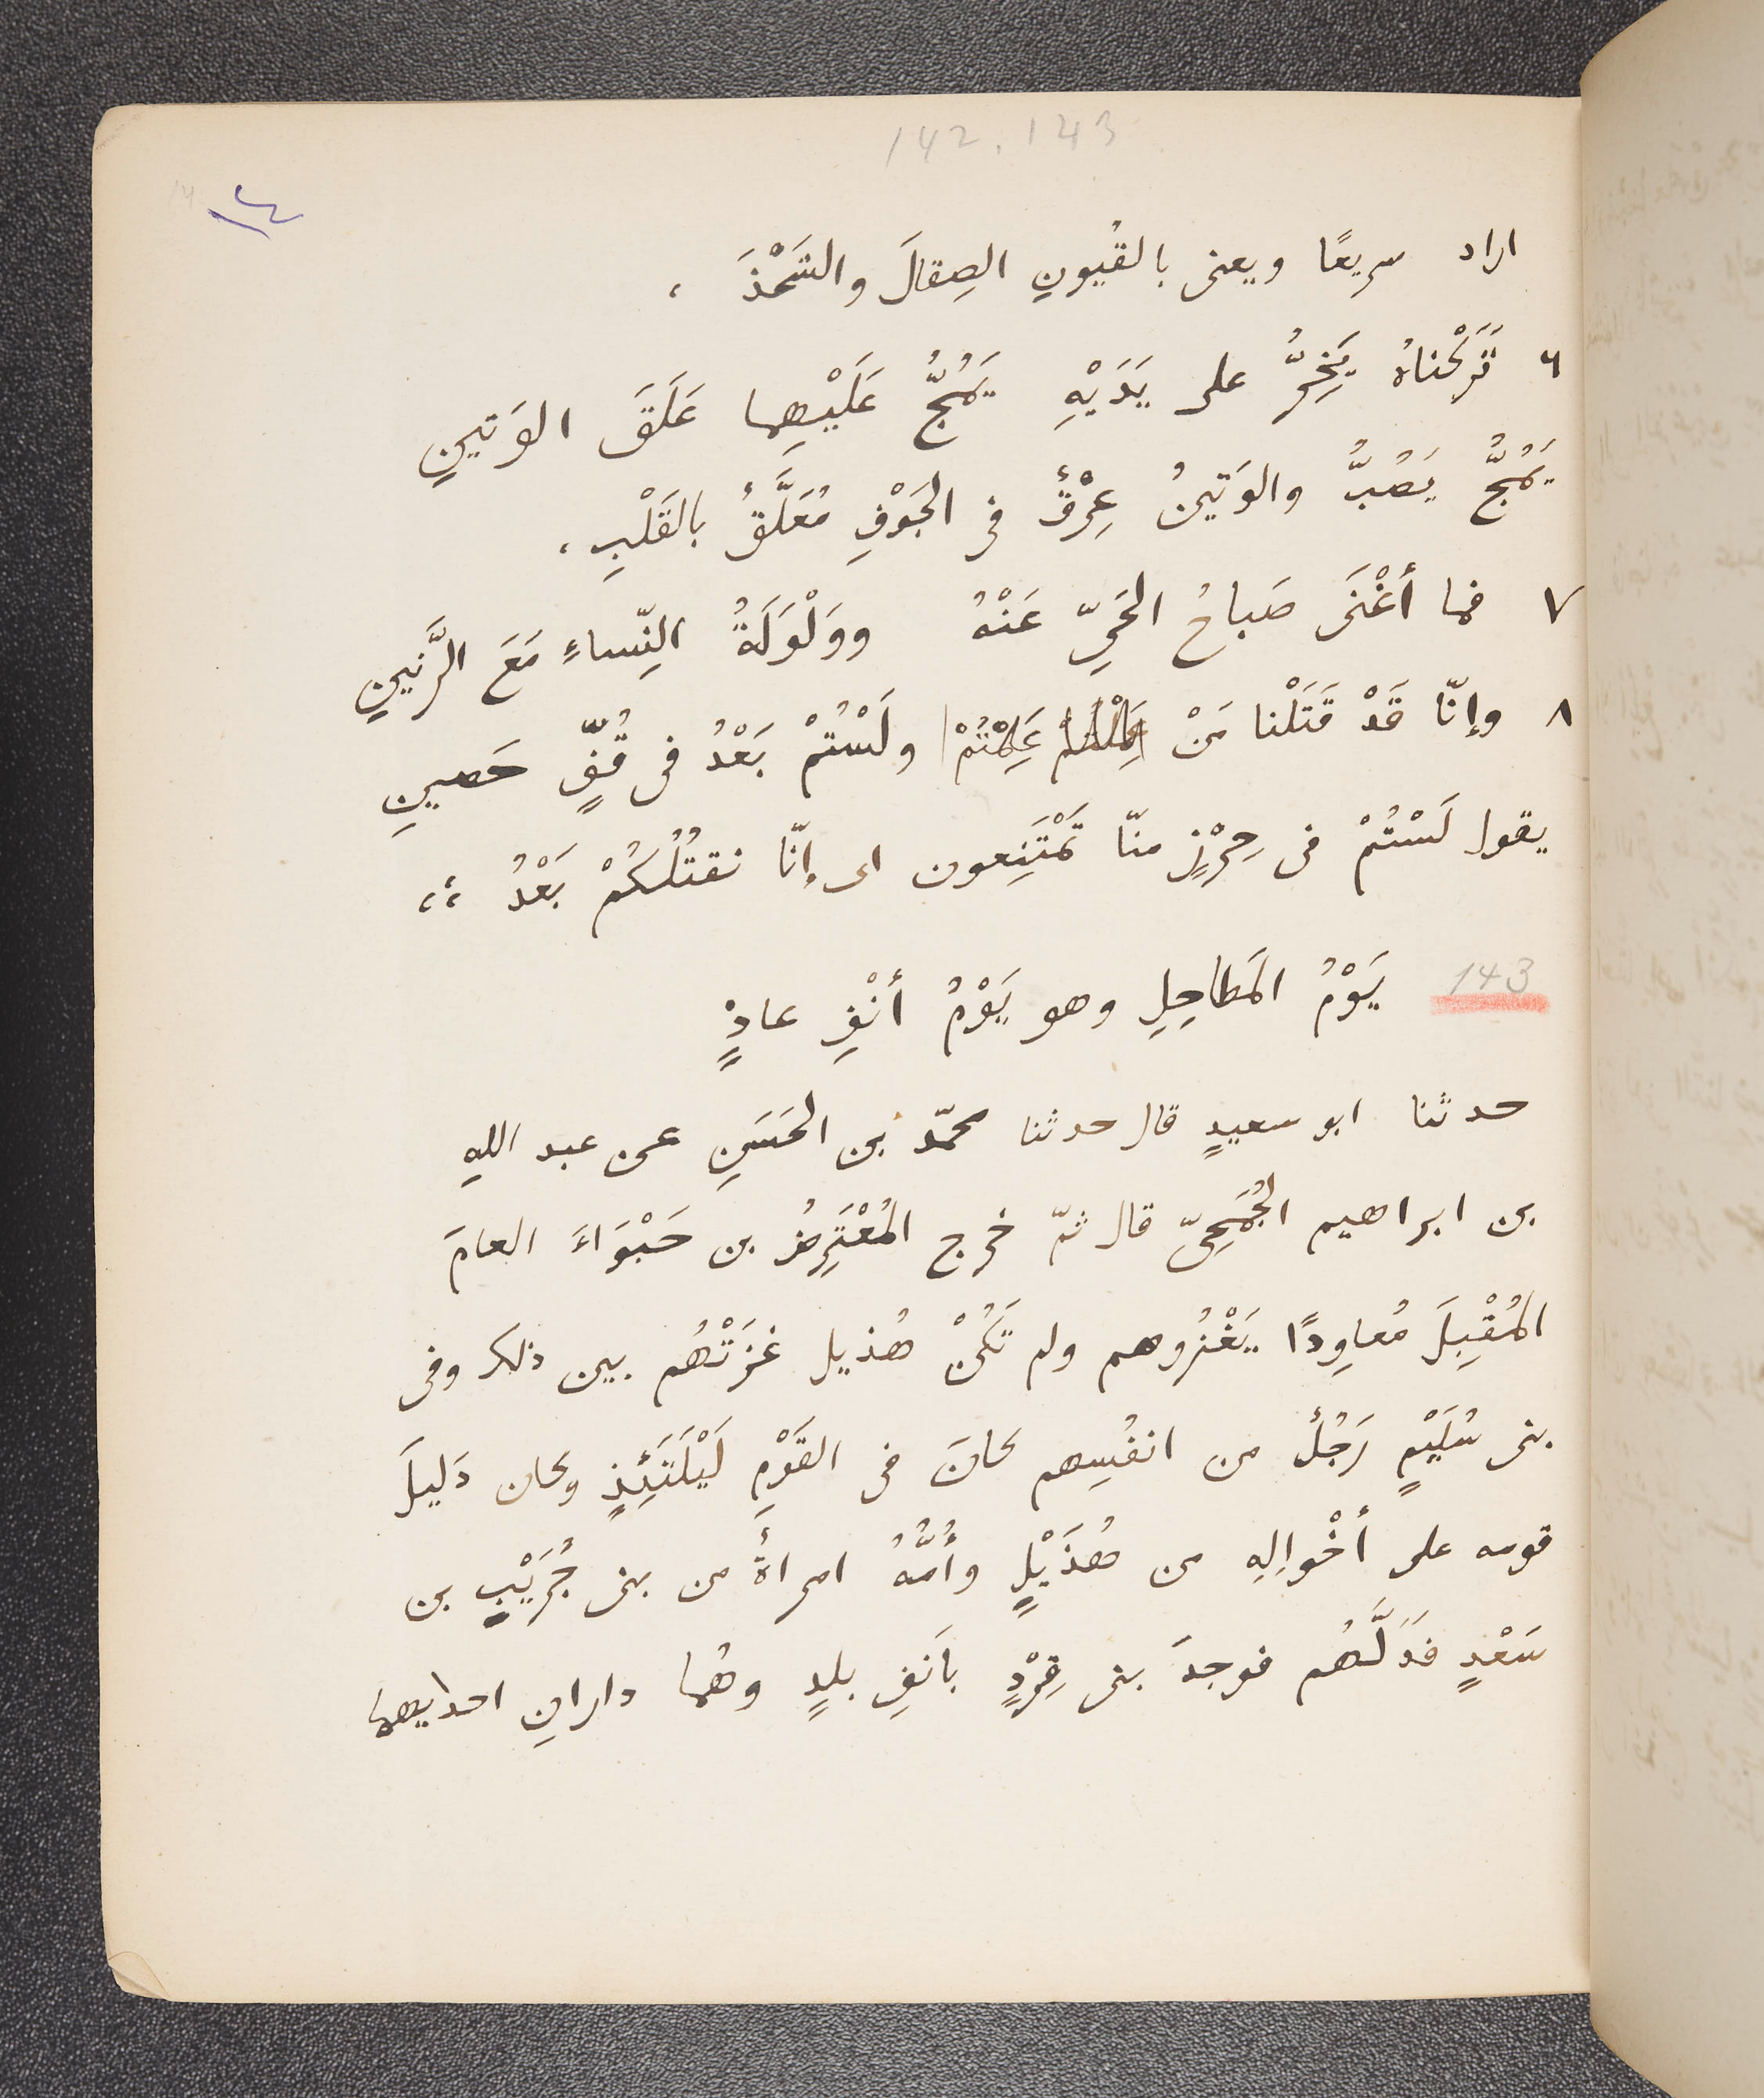 142.143
١٤
اراد سريعًا ويعنى بالقُيُونِ الصِقالَ والشَحْذَ ،
٦ تَرَكْناهُ يَخِرُّ على يَدَيْهِ يَمُجُّ عَلَيْهِما عَلَقَ الوَتينِ
يَمُجُّ يَصُبُّ والوَتينُ عِرْقٌ فى الجَوْفِ مُعَلَّقٌ بالقَلْبِ ،
٧ فما أغْنَى صَباحُ الحَيِّ عَنْهُ ووَلْوَلَةُ النِّساءِ مَعَ الرَّنينِ
٨ وإنّا قَدْ قَتَلْنا مَنْ عَلِمْتُمْ ولَسْتُمْ بَعْدُ فى قُفٍّ حَصينِ
يقول لَسْتُمْ فى حِرْزٍ منّا تَمْتَنِعون اى إنّا نقتُلُكُمْ بَعْدُ ،،
143 يَوْمُ المَطاحِلِ وهو يَوْمُ أنْفِ عاذٍ
حدثنا ابو سعيدٍ قال حدثنا محمّد بن الحَسَنِ عن عبد اللهِ
بن ابراهيم الجُمَحِىّ قال ثمّ خرج المُعْتَرِضُ بن حَبْوَاءَ العامَ
المُقْبِلَ مُعاوِدًا يَغْزُوهم ولم تَكُنْ هُذيل غزَتْهُم بين ذلك وفى
بنى سُلَيْمٍ رَجُلٌ من انفُسِهم كانَ فى القَوْمِ لَيْلَتَئِذٍ وكان دَليلَ
قومه على أخْوالِهِ من هُذَيْلٍ وأُمُّهُ امرأةٌ من بنى جُرَيْبِ بن
سَعْدٍ فدَلَّهُم فوجدَ بنى قِرْدٍ بأنفِ بلدٍ وهُما دارانِ احدايهما